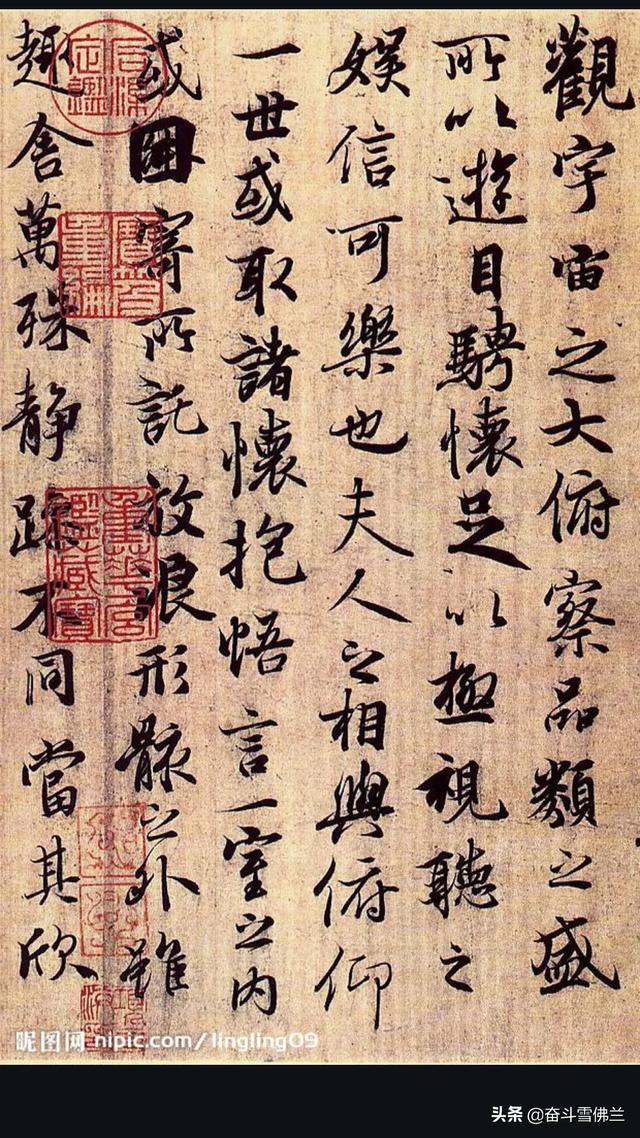 觀宇宙之大俯察品類之盛
所以遊目騁懷足以極視聽之
娛信可樂也夫人之相與俯仰
一世或取諸懷抱悟言一室之內
或因寄所託放浪形骸之外雖
趣舍萬殊靜躁不同當其欣
石渠定鑑
寶笈重編
昵图网 nipic.com/lingling09
头条 @奋斗雪佛兰